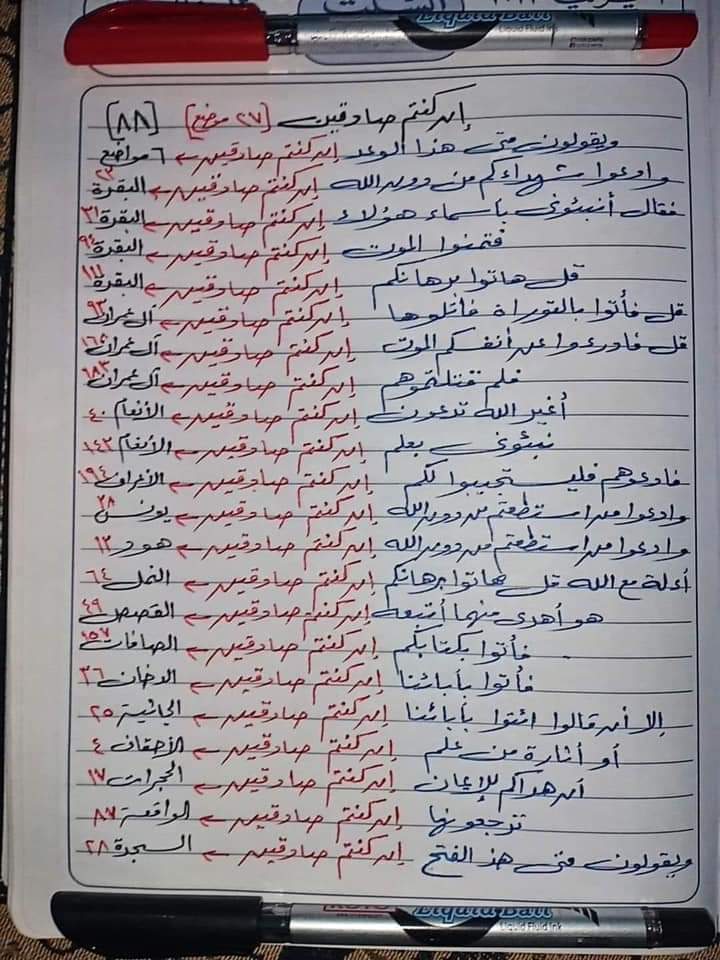 السبت
Liquid Ball
Liquid Fluid Ink
إن كنتم صادقين [٢٧ موضع] [٨٨]
ويقولون متى هذا الوعد إن كنتم صادقين ← ٦ مواضع
وادعوا شهداءكم من دون الله إن كنتم صادقين ← البقرة ٢٣
فقال أنبئونى بأسماء هؤلاء إن كنتم صادقين ← البقرة ٣١
فتمنوا الموت إن كنتم صادقين ← البقرة ٩٤
قل هاتوا برهانكم إن كنتم صادقين ← البقرة ١١١
قل فأتوا بالتوراة فاتلوها إن كنتم صادقين ← آل عمران ٩٣
قل فادرءوا عن أنفسكم الموت إن كنتم صادقين ← آل عمران ١٦٨
فلم قتلتموهم إن كنتم صادقين ← آل عمران ١٨٣
أغير الله تدعون إن كنتم صادقين ← الأنعام ٤٠
نبئونى بعلم إن كنتم صادقين ← الأنعام ١٤٣
فادعوهم فليستجيبوا لكم إن كنتم صادقين ← الأعراف ١٩٤
وادعوا من استطعتم من دون الله إن كنتم صادقين ← يونس ٣٨
وادعوا من استطعتم من دون الله إن كنتم صادقين ← هود ١٣
أءله مع الله قل هاتوا برهانكم إن كنتم صادقين ← النمل ٦٤
هو أهدى منهما أتبعه إن كنتم صادقين ← القصص ٤٩
فأتوا بكتابكم إن كنتم صادقين ← الصافات ١٥٧
فأتوا بأبائنا إن كنتم صادقين ← الدخان ٣٦
إلا أن قالوا ائتوا بأبائنا إن كنتم صادقين ← الجاثية ٢٥
أو أثارة من علم إن كنتم صادقين ← الأحقاف ٤
أن هداكم للإيمان إن كنتم صادقين ← الحجرات ١٧
ترجعونها إن كنتم صادقين ← الواقعة ٨٧
ويقولون متى هذ الفتح إن كنتم صادقين ← السجدة ٢٨
Liquid Ball
Liquid Fluid Ink